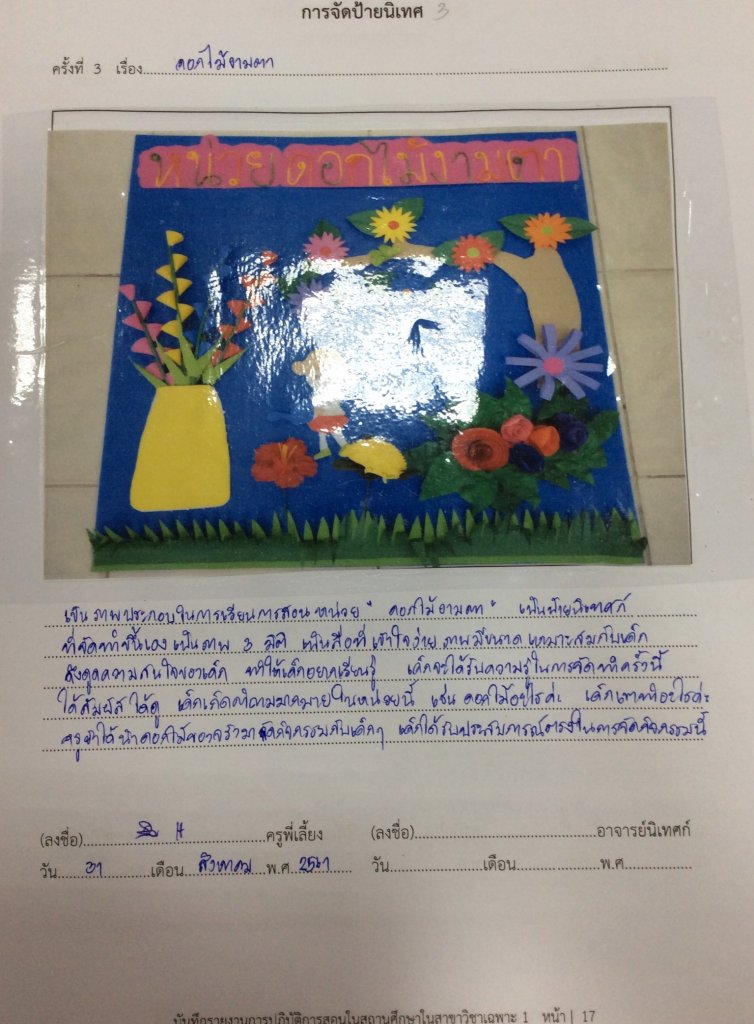 การจัดป้ายนิเทศ 3
ครั้งที่ 3 เรื่อง ดอกไม้งามตา
หน่วยดอกไม้งามตา
เป็นภาพประกอบในการเรียนการสอน หน่วย " ดอกไม้งามตา " เป็นป้ายนิเทศก์
ที่จัดทำขึ้นเอง เป็นภาพ 3 มิติ เป็นสื่อที่เข้าใจง่าย ภาพมีขนาดเหมาะสมกับเด็ก
ดึงดูดความสนใจของเด็ก ทำให้เด็กอยากเรียนรู้ เด็กจะได้รับความรู้ในการจัดทำครั้งนี้
ได้สัมผัส ได้ดู เด็กเกิดคำถามมากมายในหน่วยนี้ เช่น ดอกไม้อะไรค่ะ เด็กเขาทำอะไรค่ะ
ครูจึงได้นำดอกไม้ของจริงมาจัดกิจกรรมกับเด็กๆ เด็กได้รับประสบการณ์ตรงในการจัดกิจกรรมนี้
(ลงชื่อ) ครูพี่เลี้ยง (ลงชื่อ) อาจารย์นิเทศก์
วัน เดือน สิงหาคม พ.ศ. 2561 วัน เดือน พ.ศ.
บันทึกรายงานการปฏิบัติการสอนในสถานศึกษาในสาขาวิชาเฉพาะ 1 หน้า | 17